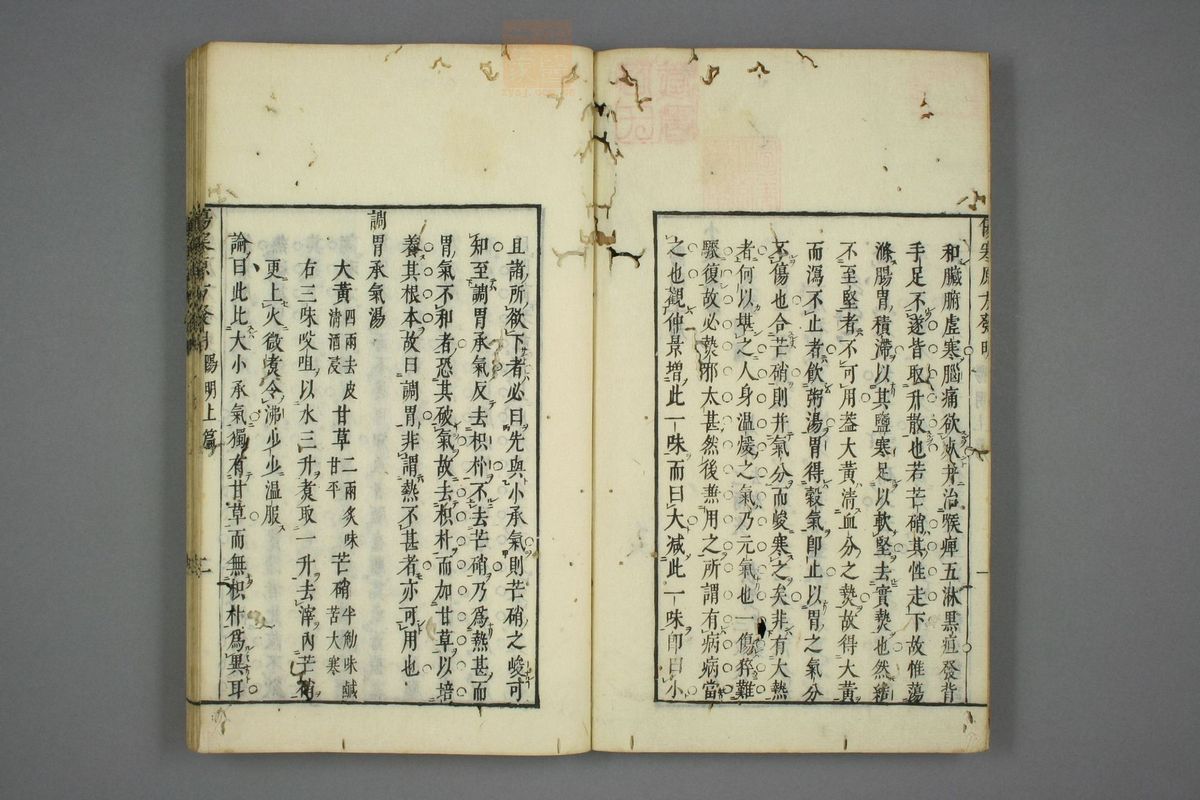 和臟腑虛寒腦痛欲死并治喉痺五淋黑疸發背
手足不遂皆取升散也若芒硝其性走下故惟蕩
滌腸胃積滯以其鹽寒足以軟堅去實𤍠也然結
不至堅者不可用葢大黃淸血分之𤍠故得大黃
而瀉不止者飲粥湯胃得穀氣卽止以胃之氣分
不傷也合芒硝則并氣分而峻寒之矣非有大熱
者何以堪之人身溫煖之氣乃元氣也一傷猝難
驟復故必𤍠邪太甚然後兼用之所謂有病病當
之也觀仲景增此一味而曰大减此一味卽曰小
傷寒原方發明
一
且諸所欲下者必曰先與小承氣則芒硝之峻可
知至調胃承氣反去枳朴不去芒硝乃爲熱甚而
胃氣不和者恐其破氣故去枳朴而加甘草以培
養其根本故曰調胃非謂熱不甚者亦可用也
調胃承氣湯
大黃四兩去皮淸酒浸 甘草二兩炙味甘平 芒硝半觔味鹹苦大寒
右三味㕮咀以水三升煮取一升去滓內芒硝
更上火微煮令沸少少溫服
論曰此比大小承氣獨有甘草而無枳朴爲異耳
傷寒原方發明 陽明上篇